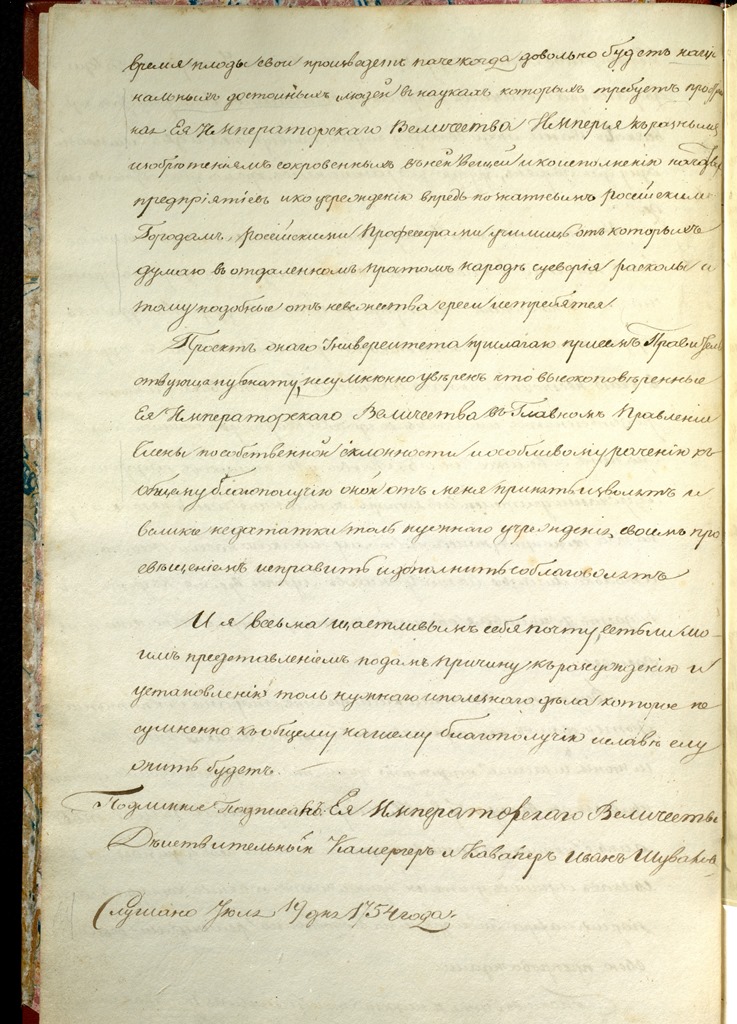 время плоды свои произведетъ паче когда довольно будетъ націо
нальныхъ достойныхъ людей въ наукахъ которыхъ требуетъ простра
ная Ея Императорскаго Величества Имперія къ разнымъ
изобрѣтеніямъ сокровенныхъ въ ней вещей и ко исполненію начатыхъ
предпріятіевъ и ко учрежденію впредь по знатнымъ россійскимъ
Городамъ россійскими Профессорами училищъ отъ которыхъ
думаю въ отдаленномъ простомъ народѣ суеверія расколы и
тому подобные отъ невежества ереси истребятся
Проектъ онаго Университета прилагаю при семъ Правитель
ствующему Сенату, несумненно увѣренъ что высокоповѣренные
Ея Императорскаго Величества въ Главномъ Правленіи
Члены по собственной склонности и особливому раченію къ
общему благополучію оной отъ меня принять изволятъ и
великіе недостатки толь нужнаго учрежденія, своимъ про
свѣщеніемъ исправить и дополнить соблаговолятъ
И я весьма щастливымъ себя почту, естьли мо-
имъ представленіемъ подамъ причину къ разсужденію и
установленію толь нужнаго и полезнаго дѣла которое не
сумненно къ общему нашему благополучію и славѣ слу
жить будетъ.
Подлинное Подписанъ: Ея Императорскаго Величества
Дѣйствительный Камергеръ и Кавалеръ Иванъ Шуваловъ
Слушано Июля 19 дня 1754 года.